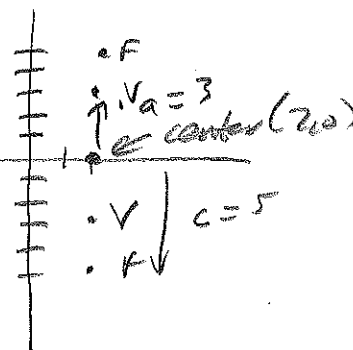 F
V a = 3
center (2,0)
V
c = 5
F